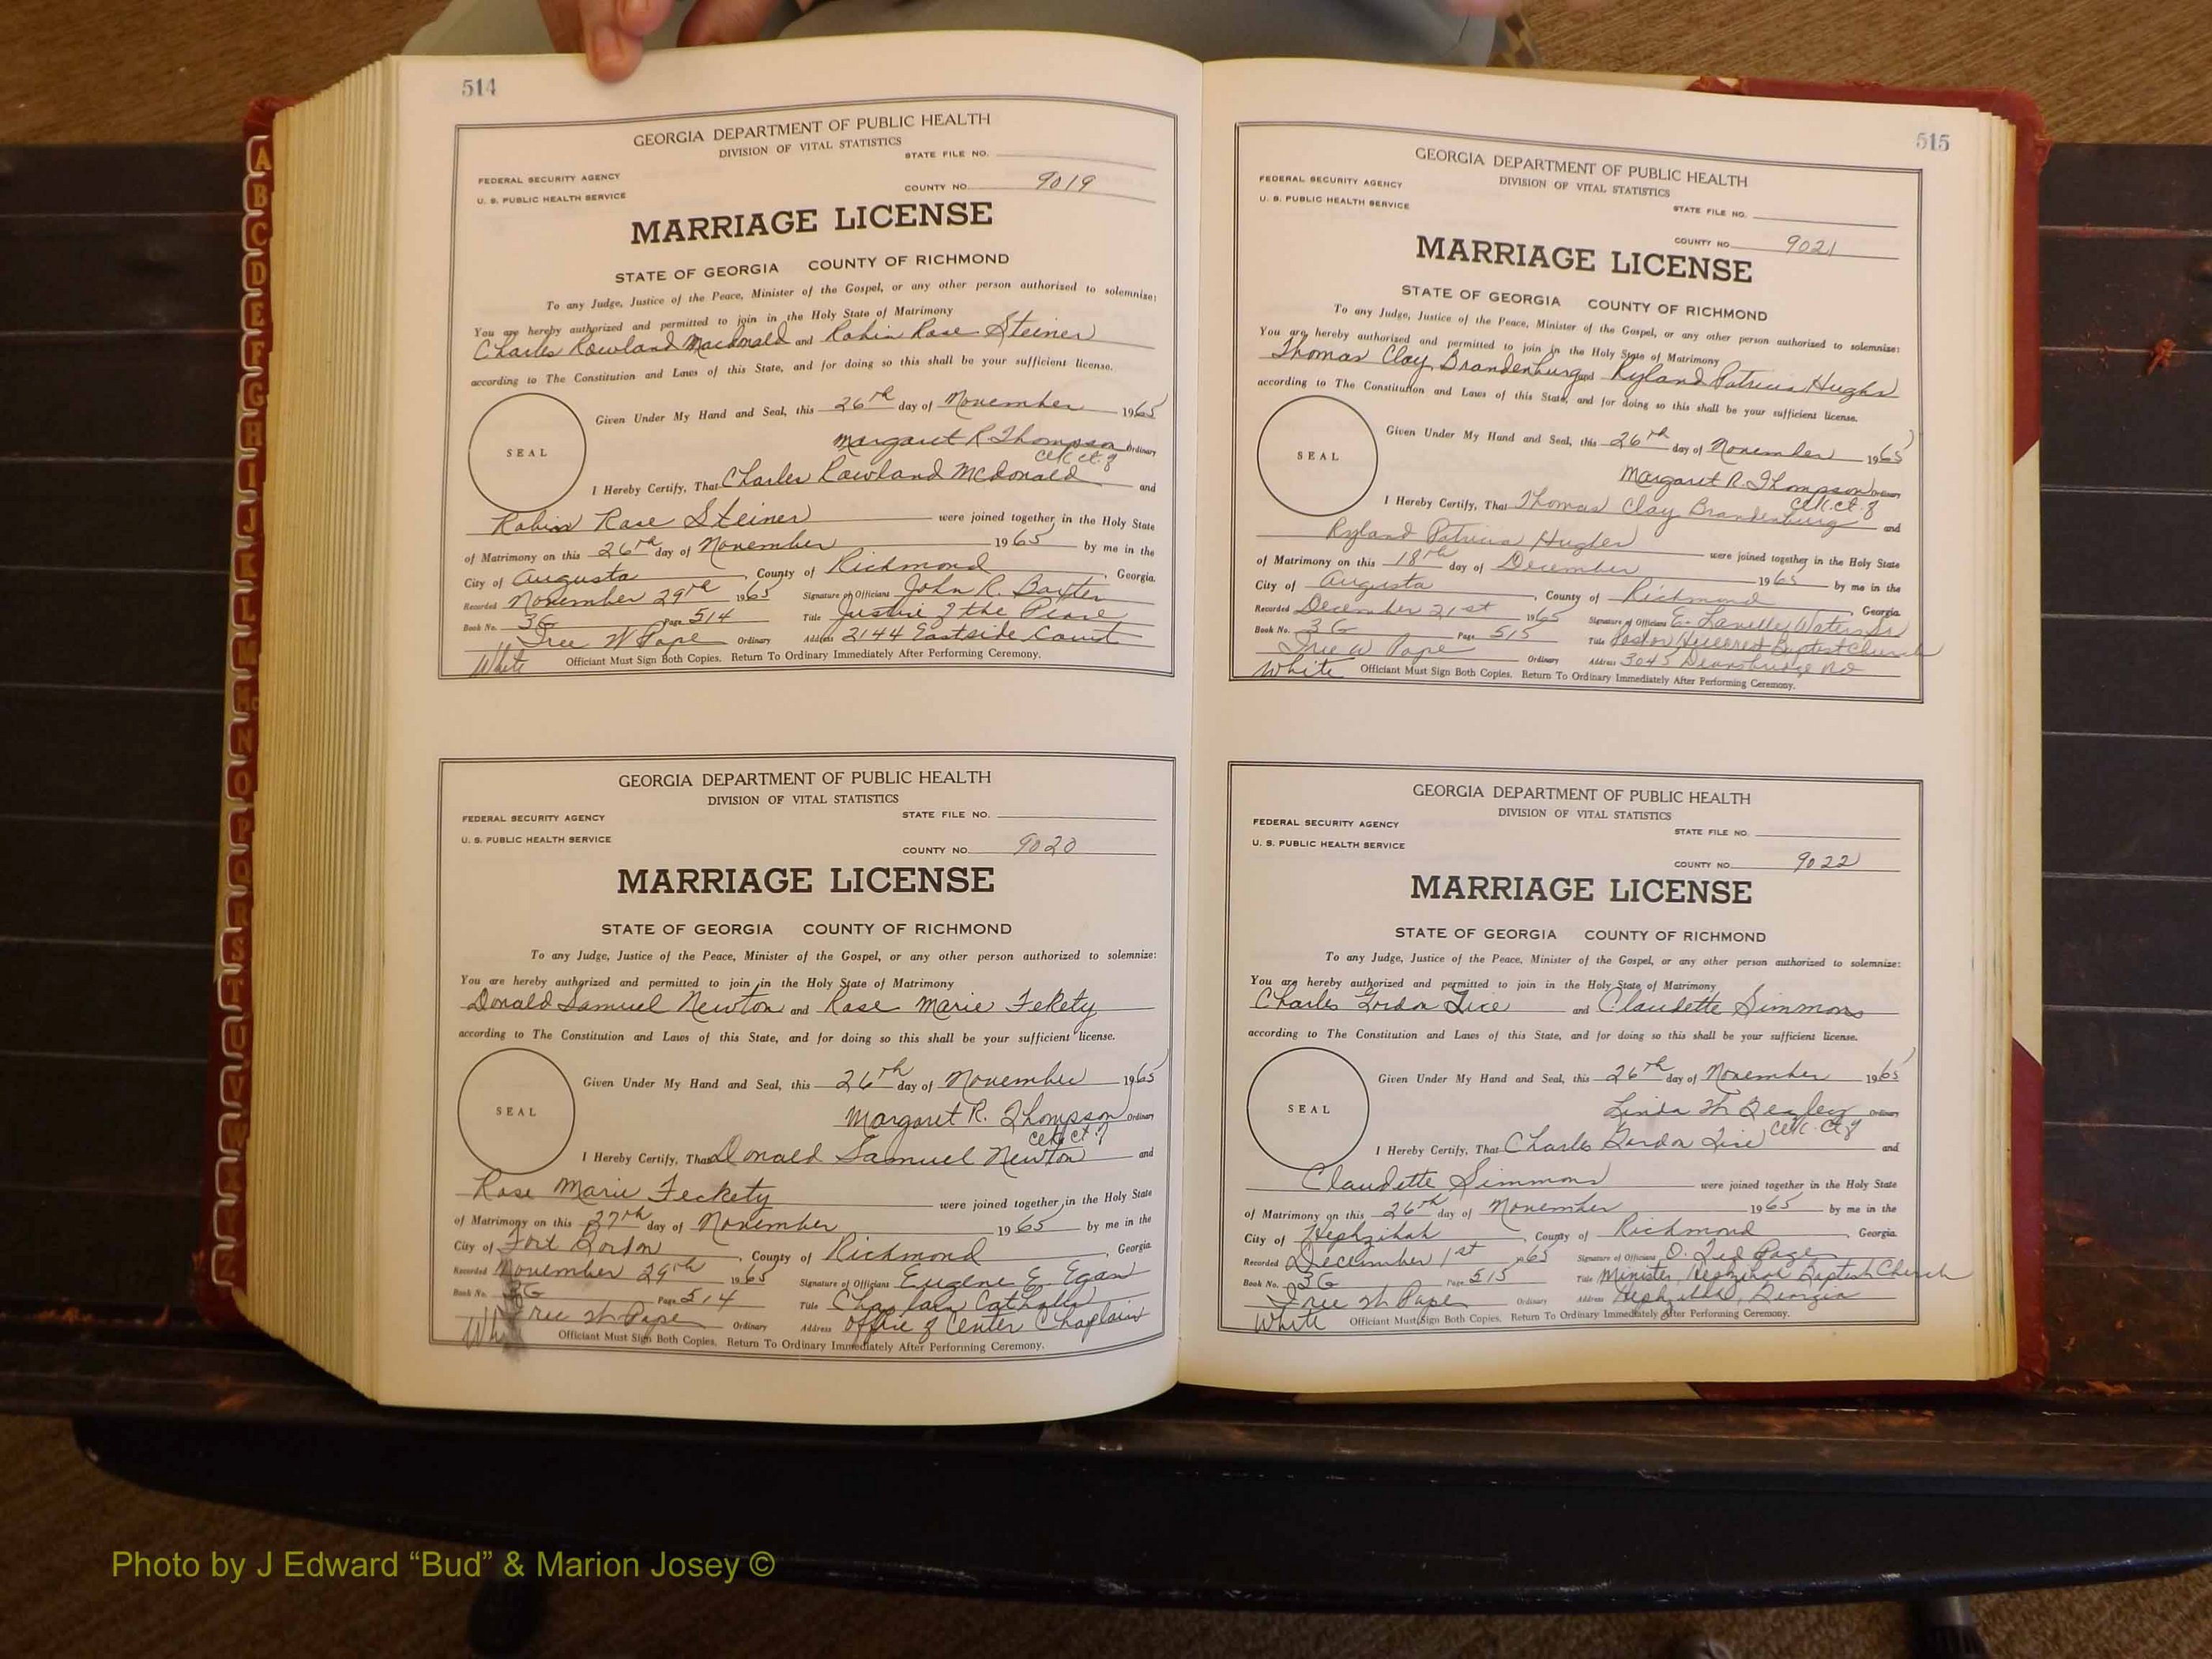 514
GEORGIA DEPARTMENT OF PUBLIC HEALTH
DIVISION OF VITAL STATISTICS
STATE FILE NO.
FEDERAL SECURITY AGENCY
U. S. PUBLIC HEALTH SERVICE
COUNTY NO. 9019
MARRIAGE LICENSE
STATE OF GEORGIA COUNTY OF RICHMOND
To any Judge, Justice of the Peace, Minister of the Gospel, or any other person authorized to solemnize:
You are hereby authorized and permitted to join in the Holy State of Matrimony
Charles Rowland Macdonald and Robin Rose Steiner
according to The Constitution and Laws of this State, and for doing so this shall be your sufficient license.
Given Under My Hand and Seal, this 26th day of November 1965
SEAL
Margaret R Thompson Ordinary
Clk. ct. of
I Hereby Certify, That Charles Rowland McDonald and
Robin Rose Steiner were joined together in the Holy State
of Matrimony on this 26th day of November 1965 by me in the
City of Augusta, County of Richmond, Georgia.
Recorded November 29th 1965 Signature of Officiant John R. Baxter
Book No. 3G Page 514 Title Justice of the Peace
Iree W Pope Ordinary Address 2144 Eastside Court
White Officiant Must Sign Both Copies. Return To Ordinary Immediately After Performing Ceremony.
GEORGIA DEPARTMENT OF PUBLIC HEALTH
DIVISION OF VITAL STATISTICS
FEDERAL SECURITY AGENCY STATE FILE NO.
U. S. PUBLIC HEALTH SERVICE
COUNTY NO. 9020
MARRIAGE LICENSE
STATE OF GEORGIA COUNTY OF RICHMOND
To any Judge, Justice of the Peace, Minister of the Gospel, or any other person authorized to solemnize:
You are hereby authorized and permitted to join in the Holy State of Matrimony
Donald Samuel Newton and Rose Marie Fekety
according to The Constitution and Laws of this State, and for doing so this shall be your sufficient license.
Given Under My Hand and Seal, this 26th day of November 1965
SEAL
Margaret R. Thompson Ordinary
Clk ct. of
I Hereby Certify, That Donald Samuel Newton and
Rose Marie Feckety were joined together in the Holy State
of Matrimony on this 27th day of November 1965 by me in the
City of Fort Gordon, County of Richmond, Georgia
Recorded November 29th 1965 Signature of Officiant Eugene E. Egan
Book No. 3G Page 514 Title Chaplain Catholic
Iree W Pope Ordinary Address Office of Center Chaplain
Officiant Must Sign Both Copies. Return To Ordinary Immediately After Performing Ceremony.
515
GEORGIA DEPARTMENT OF PUBLIC HEALTH
DIVISION OF VITAL STATISTICS
FEDERAL SECURITY AGENCY
U. S. PUBLIC HEALTH SERVICE
STATE FILE NO.
COUNTY NO. 9021
MARRIAGE LICENSE
STATE OF GEORGIA COUNTY OF RICHMOND
To any Judge, Justice of the Peace, Minister of the Gospel, or any other person authorized to solemnize:
You are hereby authorized and permitted to join in the Holy State of Matrimony
Thomas Clay Brandenburg and Ryland Patricia Hughes
according to The Constitution and Laws of this State, and for doing so this shall be your sufficient license.
Given Under My Hand and Seal, this 26th day of November 1965
SEAL
Margaret R. Thompson Ordinary
Clk. ct. of
I Hereby Certify, That Thomas Clay Brandenburg and
Ryland Patricia Hughes were joined together in the Holy State
of Matrimony on this 18th day of December 1965 by me in the
City of Augusta, County of Richmond, Georgia.
Recorded December 21st 1965 Signature of Officiant E. Waters
Book No. 3G Page 515 Title Pastor Hillcrest Baptist Church
Iree W Pope Ordinary Address 3045 Deansbridge Rd
White Officiant Must Sign Both Copies. Return To Ordinary Immediately After Performing Ceremony.
GEORGIA DEPARTMENT OF PUBLIC HEALTH
DIVISION OF VITAL STATISTICS
FEDERAL SECURITY AGENCY
STATE FILE NO.
U. S. PUBLIC HEALTH SERVICE
COUNTY NO. 9022
MARRIAGE LICENSE
STATE OF GEORGIA COUNTY OF RICHMOND
To any Judge, Justice of the Peace, Minister of the Gospel, or any other person authorized to solemnize:
You are hereby authorized and permitted to join in the Holy State of Matrimony
Charles Gordon Tice and Claudette Simmons
according to The Constitution and Laws of this State, and for doing so this shall be your sufficient license.
Given Under My Hand and Seal, this 26th day of November 1965
SEAL
Linda W Beazley Ordinary
Clk. Ct. of
I Hereby Certify, That Charles Gordon Tice and
Claudette Simmons were joined together in the Holy State
of Matrimony on this 26th day of November 1965 by me in the
City of Hephzibah, County of Richmond, Georgia.
Recorded December 1st 1965 Signature of Officiant O. Ted Page
Book No. 3G Page 515 Title Minister, Hephzibah Baptist Church
Iree W Pope Ordinary Address Hephzibah, Georgia
White Officiant Must Sign Both Copies. Return To Ordinary Immediately After Performing Ceremony.
A
B
C
D
E
F
G
H
I
J
K
L
M
Mc
N
O
P
Q
R
S
T
U
V
W
X
Y
Z
Photo by J Edward “Bud” & Marion Josey ©